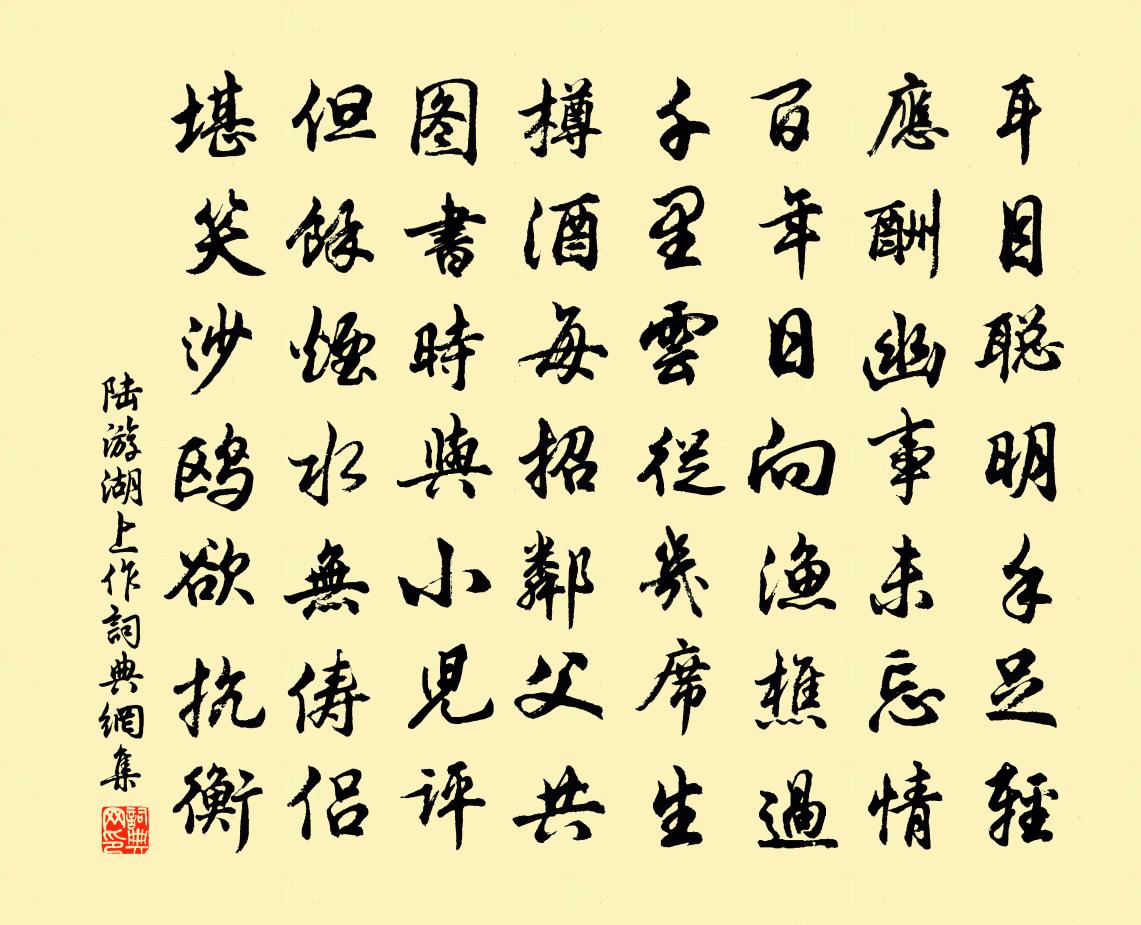 耳目聪明手足輕
應酬幽事未忘情
百年日向漁樵過
千里雲從几席生
樽酒每招鄰父共
图書時與小児評
但餘煙水無儔侣
堪笑沙鸥欲抗衡
陆游湖上作詞典網集
詞典网印